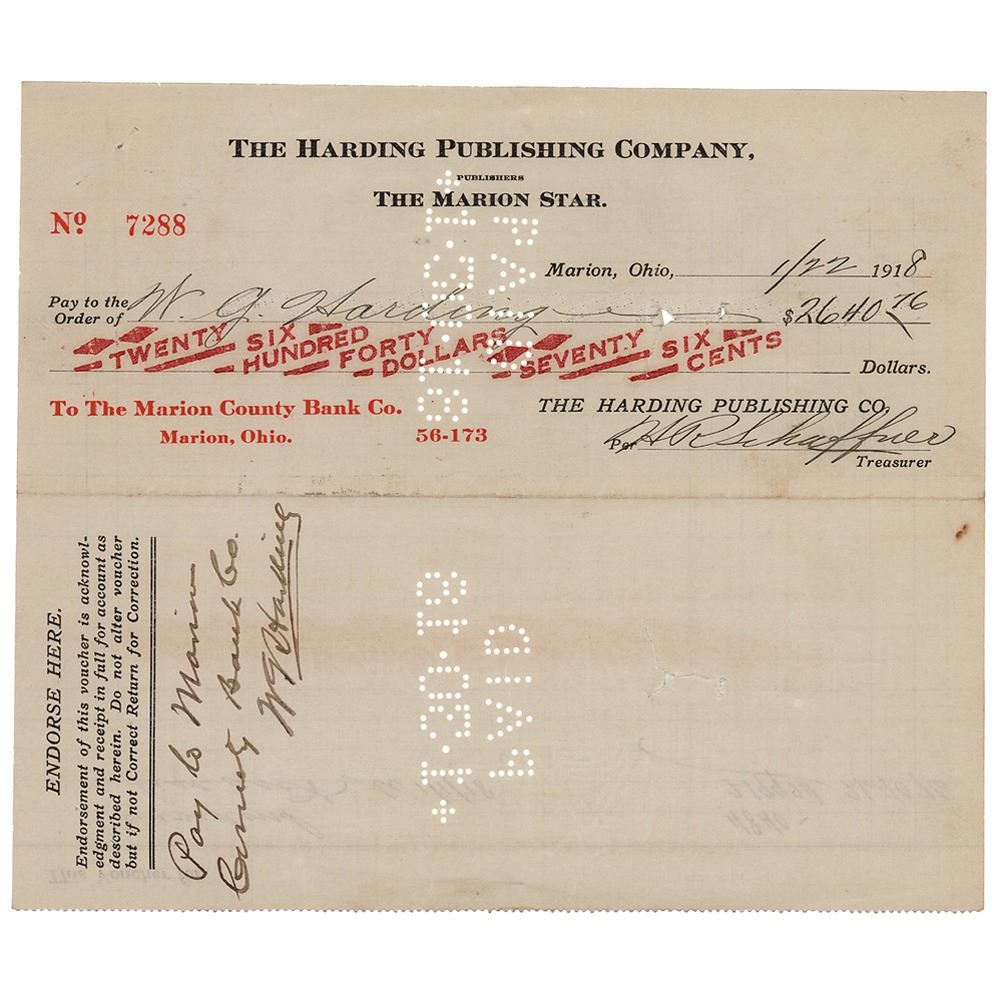 THE HARDING PUBLISHING COMPANY,
PUBLISHERS
THE MARION STAR.
No 7288
Marion, Ohio, 1/22 1918
Pay to the
Order of W. G. Harding $2640 76
TWENTY SIX HUNDRED FORTY DOLLARS SEVENTY SIX CENTS
Dollars.
To The Marion County Bank Co.
Marion, Ohio. 56-173
THE HARDING PUBLISHING CO.
Per H R Schaffner
Treasurer
PAID
ENDORSE HERE.
Endorsement of this voucher is acknowl-
edgment and receipt in full for account as
described herein. Do not alter voucher
but if not Correct Return for Correction.
Pay to Marion
County Bank Co.
W G Harding
PAID